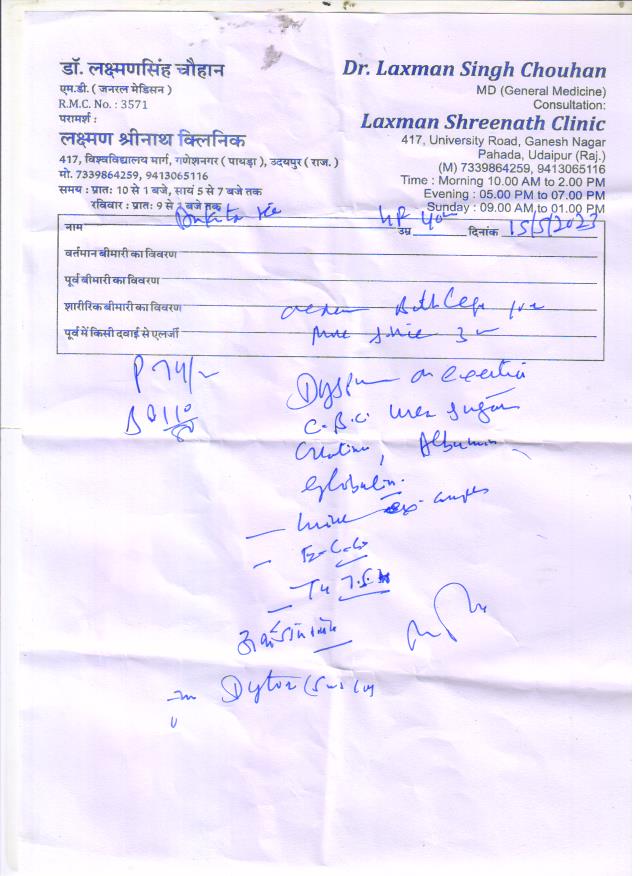 डॉ. लक्ष्मणसिंह चौहान
एम.डी. ( जनरल मेडिसन )
R.M.C. No. : 3571
परामर्श :
लक्ष्मण श्रीनाथ क्लिनिक
417, विश्वविद्यालय मार्ग, गणेशनगर ( पायड़ा ), उदयपुर ( राज. )
मो. 7339864259, 9413065116
समय : प्रातः 10 से 1 बजे, सायं 5 से 7 बजे तक
रविवार : प्रातः 9 से 1 बजे तक
Dr. Laxman Singh Chouhan
MD (General Medicine)
Consultation:
Laxman Shreenath Clinic
417, University Road, Ganesh Nagar
Pahada, Udaipur (Raj.)
(M) 7339864259, 9413065116
Time : Morning 10.00 AM to 2.00 PM
Evening : 05.00 PM to 07.00 PM
Sunday : 09.00 AM to 01.00 PM
नाम उम्र दिनांक 15/5/2023
वर्तमान बीमारी का विवरण
पूर्व बीमारी का विवरण
शारीरिक बीमारी का विवरण Both Legs
पूर्व में किसी दवाई से एलर्जी
P 74/
110/80
on exertion
C.B.C. Urea Sugar
Creatinine, Albumin
Globulin.
Urine
E.C.G.
Dytor